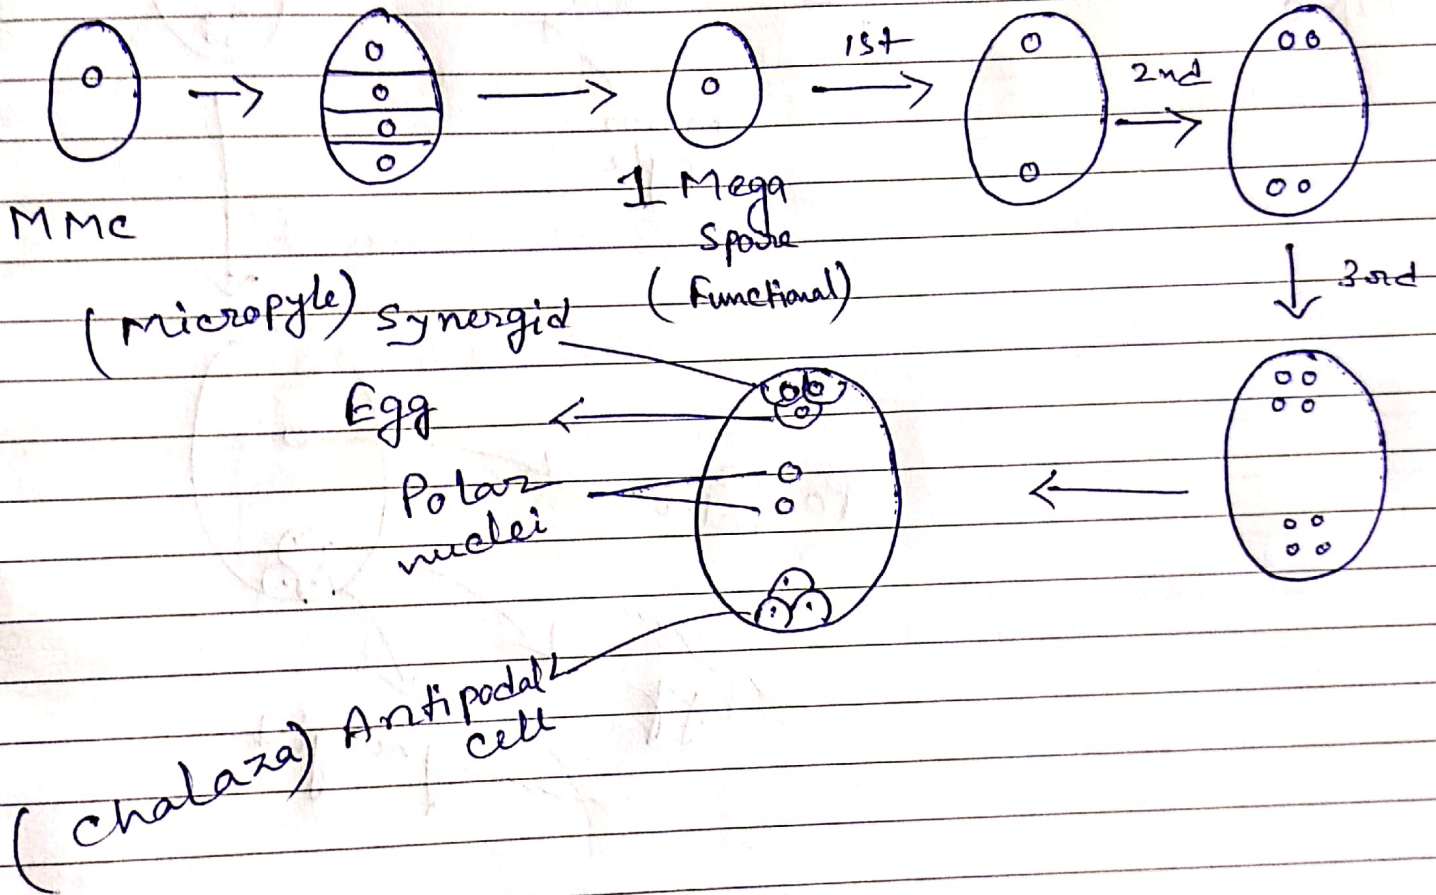 1st
2nd
MMC
1 Mega
Spore
(Functional)
3rd
(Micropyle) Synergid
Egg
Polar
nuclei
(Chalaza) Antipodal
cell